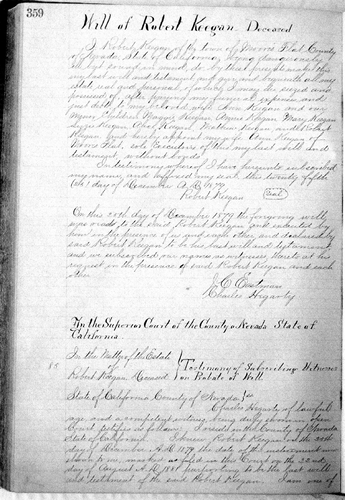 359
Will of Robert Keegan Deceased
I Robert Keegan of the town of Moores Flat County
of Nevada State of California being
do
my last will and testament and give and bequeath all my
estate real and personal of which I may be seized and
possessed of after paying my funeral expenses and
just debts to my beloved wife Ann Keegan and our
Maggie Keegan Agnes Keegan Mary Keegan
Keegan Keegan Keegan and
Keegan and hereby appoint Ann Keegan of
Moores Flat sole Executrix of this my last will and
testament without bonds
In testimony whereof I have hereunto subscribed
my name and affixed my seal this twenty fifth
(25) day of December A.D. 1879
Robert Keegan (Seal)
On this 25th day of December 1879 the foregoing will
was read to the said Robert Keegan and executed by
him in the presence of us and each other and declared by
said Robert Keegan to be his last will and testament
and we subscribed our names as witnesses thereto at his
request in the presence of said Robert Keegan and each
other
J C Eastman
Charles Hegarty
In the Superior Court of the County of Nevada State of
California
In the Matter of the Estate
of
Robert Keegan Deceased
Testimony of Subscribing Witness
on Probate of Will
State of California County of Nevada ss
Charles Hegarty of lawful
age and a competent witness being duly sworn in open
Court testifies as follows I reside in the County of Nevada
State of California I knew Robert Keegan on the 25th
day of December A.D. 1879 the date of the instrument now
shown to me marked as filed in this Court on the 22nd
day of August A.D. 1881 purporting to be the last will
and testament of the said Robert Keegan I am one of